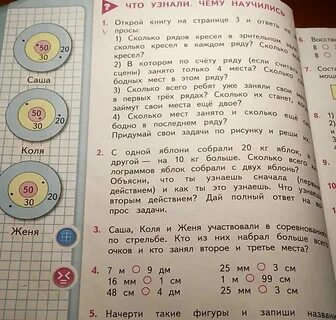 ? ЧТО УЗНАЛИ. ЧЕМУ НАУЧИЛИСЬ
1. Открой книгу на странице 3 и ответь
просы:
1) Сколько рядов кресел в зрительном
сколько кресел в каждом ряду? Сколько
кресел?
2) В котором по счёту ряду (если считать
сцены) занято только 4 места? Сколько
бодных мест в этом ряду?
3) Сколько всего ребят уже заняли свои
в первых трёх рядах? Сколько их станет,
займут свои места ещё двое?
4) Сколько мест занято и сколько ещё
бодно в последнем ряду?
Придумай свои задачи по рисунку и реши их
2. С одной яблони собрали 20 кг яблок, а
другой — на 10 кг больше. Сколько всего
лограммов яблок собрали с двух яблонь?
Объясни, что ты узнаешь сначала (первым
действием) и как это узнаешь. Что узнаешь
вторым действием? Дай полный ответ на
рос задачи.
3. Саша, Коля и Женя участвовали в соревновании
по стрельбе. Кто из них набрал больше всего
очков и кто занял второе и третье места?
4. 7 м 9 дм 25 мм 3 см
16 мм 1 см 1 м 99 см
2 м 20 дм 25 мм 2 см
5. Начерти такие фигуры и запиши названия
6. Восстан
8
8
7. Соста
мами
50
30
20
Саша
50
30
20
Коля
50
30
20
Женя